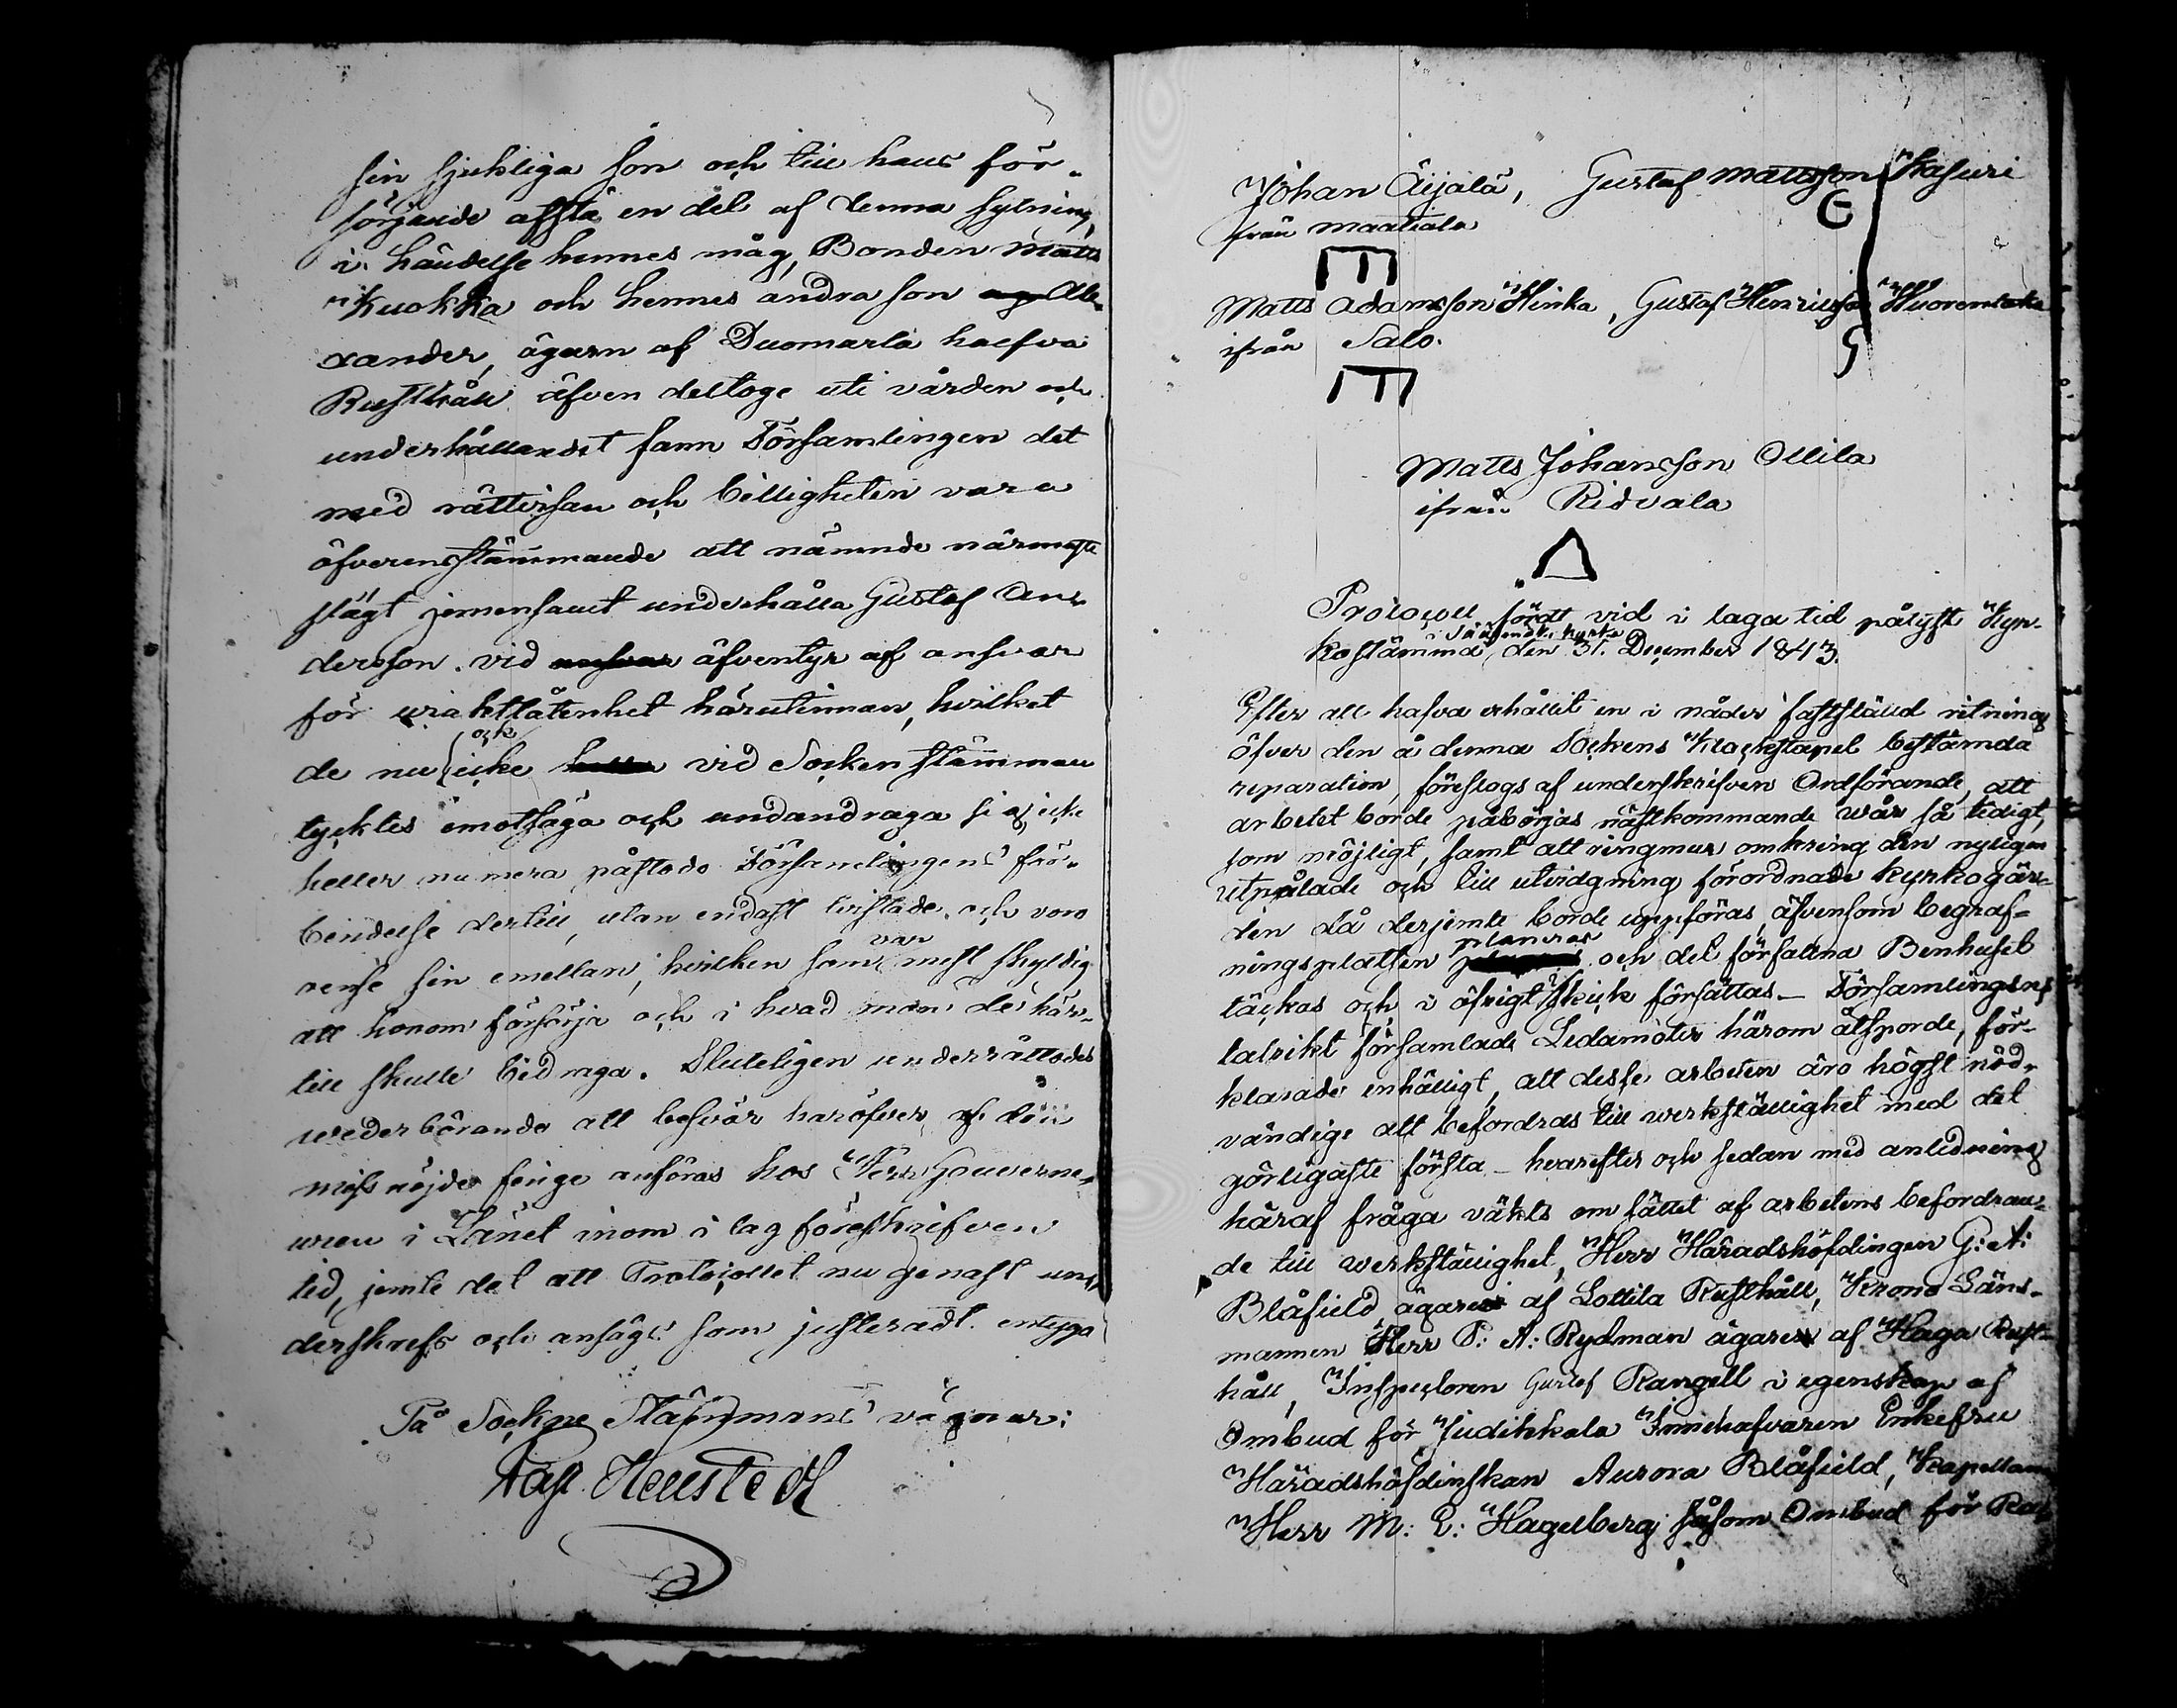 sin sjukliga son och till hans för-
sörjande afstå en del af denna sytning,
i händelse hennes måg, Bonden Matts
Kuokka och hennes andra son Ale-
xander, ägarn af Duomarla halfva
Rusthåll äfven deltoge uti vården och
underhållandet fann Församlingen det
med rättvisan och billigheten vara
öfverensstämmande att nämnde närmaste
slägt jemensamt underhålla Gustaf An-
dersson vid äfventyr af ansvar
för uraktlåtenhet härutinnan, hvilket
och
de nu icke vid Sockenstämman
tycktes emotsäga och undandraga sig icke
heller numera påstods Församlingens för-
bindelse dertill, utan endast tvistade och voro
var
rense sin emellan, hvilken som mest skyldig
att honom försörja och i hvad mon de här-
till skulle bidraga. Sluteligen underrättades
wederbörande att besvär häröfver af den
missnöjde finge anföras hos Herr Gouverne-
uren i Länet inom i lag föreskrifven
tid, jemte det att Protocollet nu genast un-
derskrefs och ansågs som justeradt. intyga
På Sockne Stämmans vägnar:
Aug. Hellstedt
Johan Äijälä, Gustaf Mattsson Kasuri
från Maatiala
Matts Adamsson Hinka, Gustaf Henriksson Wuorentaka
ifrån Salo.
Matts Johansson Ollila
ifrån Ridvala
Protocoll, fördt vid i laga tid pålyst Kyr-
i Sääksmäki kyrka
kostämma den 31. December 1843.
Efter att hafva erhållit en i nåder fastställd ritning
öfver den å denna Sockens Klockstapel bestämda
reparation, föreslogs af underskrifven Ordförande, att
arbetet borde påbörjas nästkommande wår så tidigt,
som möjligt, samt att ringmur omkring den nyligen
utpålade och till utvidgning förordnade kyrkogår-
den då derjemte borde uppföras, äfvensom begraf-
planeras
ningsplatsen och det förfallna Benhuset
täckas och i öfrigt skick försättas. — Församlingens
talrikt församlade Ledamöter härom åtsporde, för-
klarade enhälligt, att desse arbeten äro högst nöd-
vändige att befordras till werkställighet med det
görligaste första — hvarefter och sedan med anledning
häraf fråga väkts om sättet af arbetens befordran-
de till werkställighet, Herr Häradshöfdingen G: A:
Blåfield ägare af Lottila Rusthåll, Krono Läns-
mannen Herr P: A: Rydman ägaren af Haga Rust-
håll, Inspectoren Gustaf Rangell i egenskap af
Ombud för Judikkala Innehafvaren Enkefru
Häradshöfdinskan Aurora Blåfield, Kapellan
Herr M: E: Hagelberg såsom Ombud för